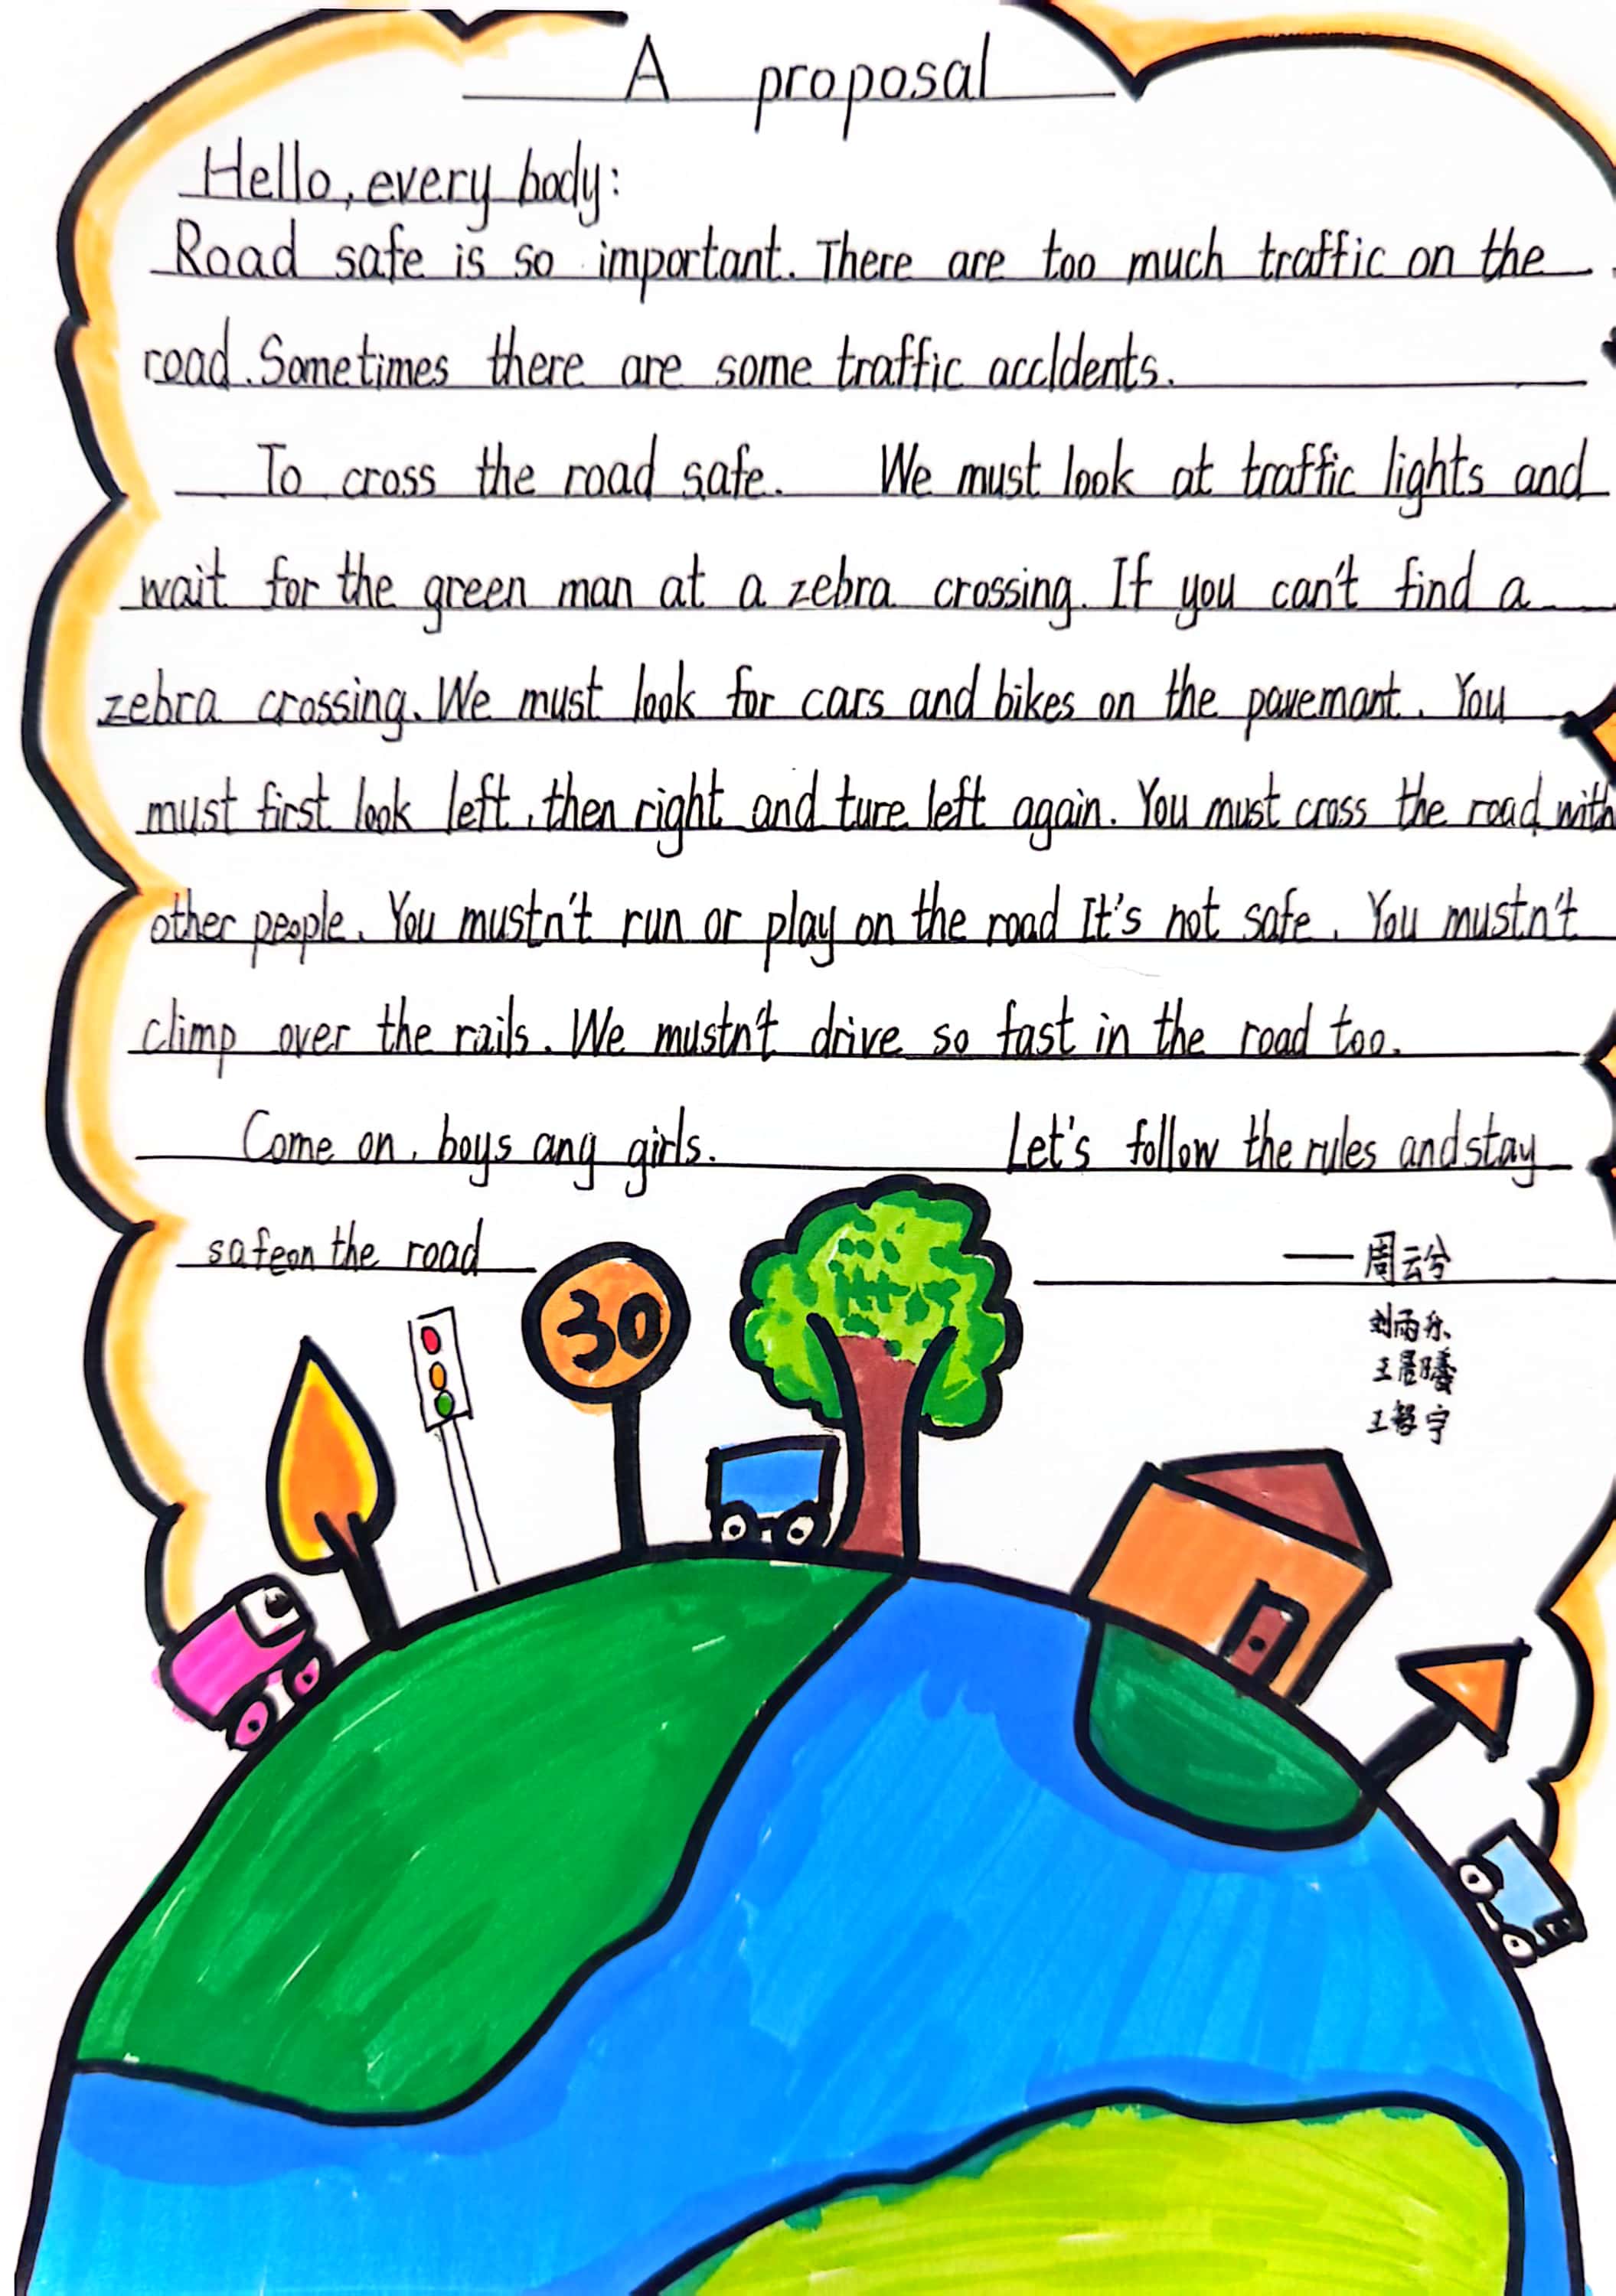 A proposal
Hello, every body:
Road safe is so important. There are too much traffic on the
road. Sometimes there are some traffic accldents.
To cross the road safe. We must look at traffic lights and
wait for the green man at a zebra crossing. If you can't find a
zebra crossing. We must look for cars and bikes on the pavemant. You
must first look left, then right and ture left again. You must cross the road with
other people. You mustn't run or play on the road It's not safe. You mustn't
climp over the rails. We mustn't drive so fast in the road too.
Come on, boys ang girls. Let's follow the rules and stay
safe on the road
——周云兮
刘雨乐
王晨曦
王宇
30